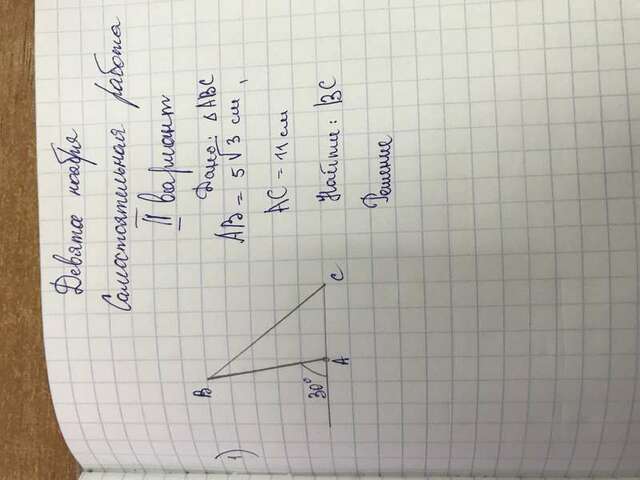 Девятое ноября
Самостоятельная работа
II вариант
1)
Дано: ΔABC
AB = 5√3 см,
AC = 11 см
Найти: BC
Решение
B
30°
A
C